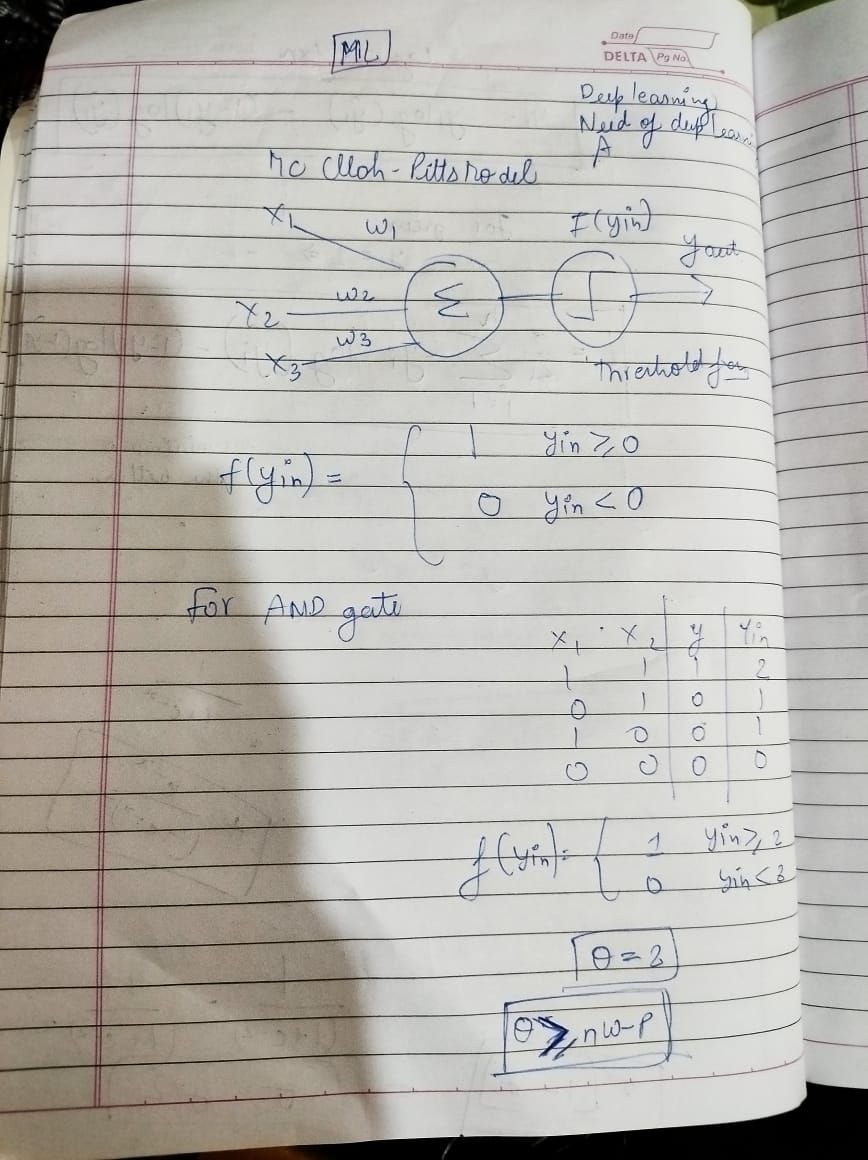 ML
Date
DELTA Pg No
Deep learning
Need of deep learni
A
Mc Clloh-Pitts Model
X1 w1 F(yin)
yout
X2 w2 Σ
X3 w3
threshold fxn
f(yin) = { 1 yin ≥ 0
0 yin < 0
for AND gate
x1 · x2 y Yin
1 1 1 2
0 1 0 1
1 0 0 1
0 0 0 0
f(yin) = { 1 yin ≥ 2
0 yin < 2
θ = 2
θ ≥ nw-p